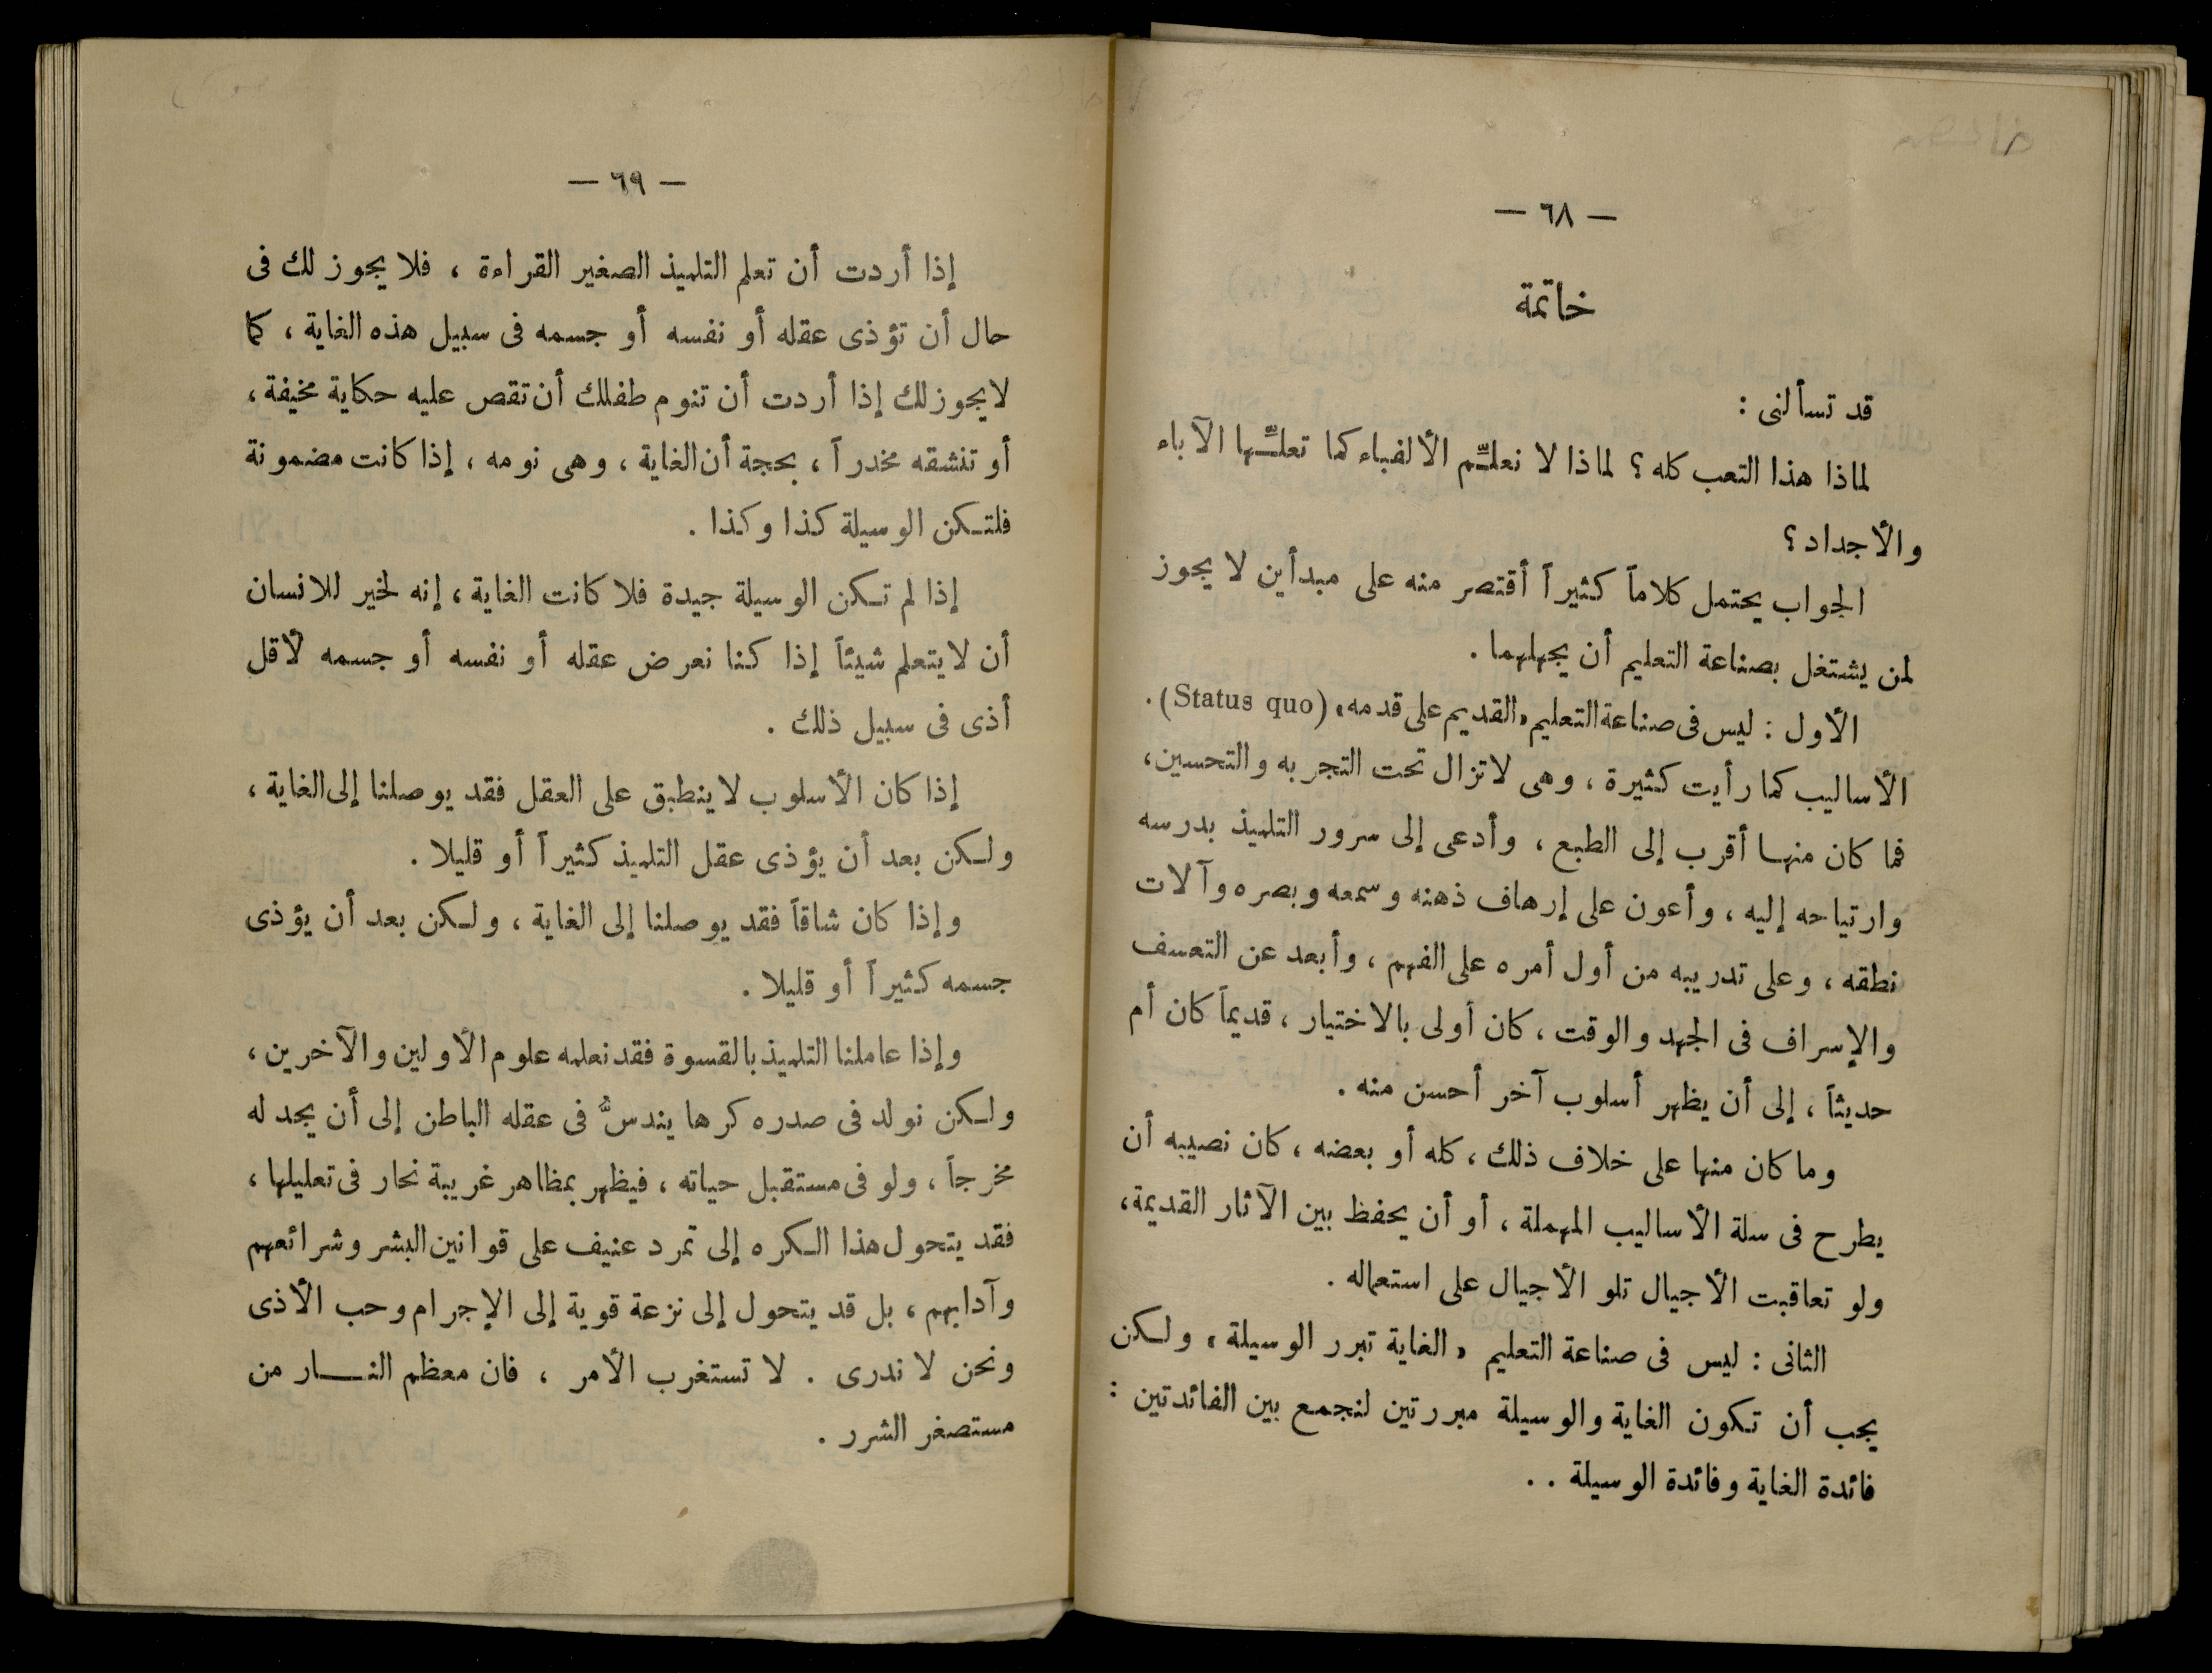 — ٦٨ —
خاتمة
قد تسألنى :
لماذا هذا التعب كله ؟ لماذا لا نعلِّم الألفباء كما تعلَّمها الآباء
والأجداد ؟
الجواب يحتمل كلاماً كثيراً أقتصر منه على مبدأين لا يجوز
لمن يشتغل بصناعة التعليم أن يجهلهما .
الأول : ليس فى صناعة التعليم « القديم على قدمه » (Status quo) .
الأساليب كما رأيت كثيرة ، وهى لا تزال تحت التجربه والتحسين ،
فما كان منها أقرب إلى الطبع ، وأدعى إلى سرور التلميذ بدرسه
وارتياحه إليه ، وأعون على إرهاف ذهنه وسمعه وبصره وآلات
نطقه ، وعلى تدريبه من أول أمره على الفهم ، وأبعد عن التعسف
والإسراف فى الجهد والوقت ، كان أولى بالاختيار ، قديماً كان أم
حديثاً ، إلى أن يظهر أسلوب آخر أحسن منه .
وما كان منها على خلاف ذلك ، كله أو بعضه ، كان نصيبه أن
يطرح فى سلة الأساليب المهملة ، أو أن يحفظ بين الآثار القديمة ،
ولو تعاقبت الأجيال تلو الأجيال على استعماله .
الثانى : ليس فى صناعة التعليم « الغاية تبرر الوسيلة » ولكن
يجب أن تكون الغاية والوسيلة مبررتين لنجمع بين الفائدتين :
فائدة الغاية وفائدة الوسيلة . .
— ٦٩ —
إذا أردت أن تعلم التلميذ الصغير القراءة ، فلا يجوز لك فى
حال أن تؤذى عقله أو نفسه أو جسمه فى سبيل هذه الغاية ، كما
لا يجوز لك إذا أردت أن تنوم طفلك أن تقص عليه حكاية مخيفة ،
أو تنشقه مخدراً ، بحجة أن الغاية ، وهى نومه ، إذا كانت مضمونة
فلتكن الوسيلة كذا وكذا .
إذا لم تكن الوسيلة جيدة فلا كانت الغاية ، إنه لخير للانسان
أن لا يتعلم شيئاً إذا كنا نعرض عقله أو نفسه أو جسمه لأقل
أذى فى سبيل ذلك .
إذا كان الأسلوب لا ينطبق على العقل فقد يوصلنا إلى الغاية ،
ولكن بعد أن يؤذى عقل التلميذ كثيراً أو قليلا .
وإذا كان شاقاً فقد يوصلنا إلى الغاية ، ولكن بعد أن يؤذى
جسمه كثيراً أو قليلا .
وإذا عاملنا التلميذ بالقسوة فقد نعلمه علوم الأولين والآخرين ،
ولكن نولد فى صدره كرها يندسُّ فى عقله الباطن إلى أن يجد له
مخرجاً ، ولو فى مستقبل حياته ، فيظهر بمظاهر غريبة نحار فى تعليلها ،
فقد يتحول هذا الكره إلى تمرد عنيف على قوانين البشر وشرائعهم
وآدابهم ، بل قد يتحول إلى نزعة قوية إلى الإجرام وحب الأذى
ونحن لا ندرى . لا تستغرب الأمر ، فان معظم النار من
مستصغر الشرر .